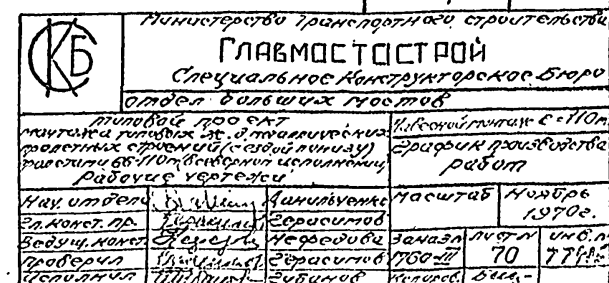 Министерство транспортного строительства
СКБ
ГЛАВМОСТОСТРОЙ
Специальное Конструкторское Бюро
отдел больших мостов
типовой проект
монтажа типовых ж.д. металлических
пролетных строений (с ездой понизу)
пролетами 66-110м в северном исполнении
Рабочие чертежи
Навесной монтаж ℓ=110м
График производства
работ
Нач. отдела Данильченко
Гл. конст. пр. Герасимов
Ведущ. конст. Нефедова
Проверил Герасимов
Исполнил Зубанов
Масштаб Ноябрь
1970г.
Заказ N Лист N Инв. N
760-III 70